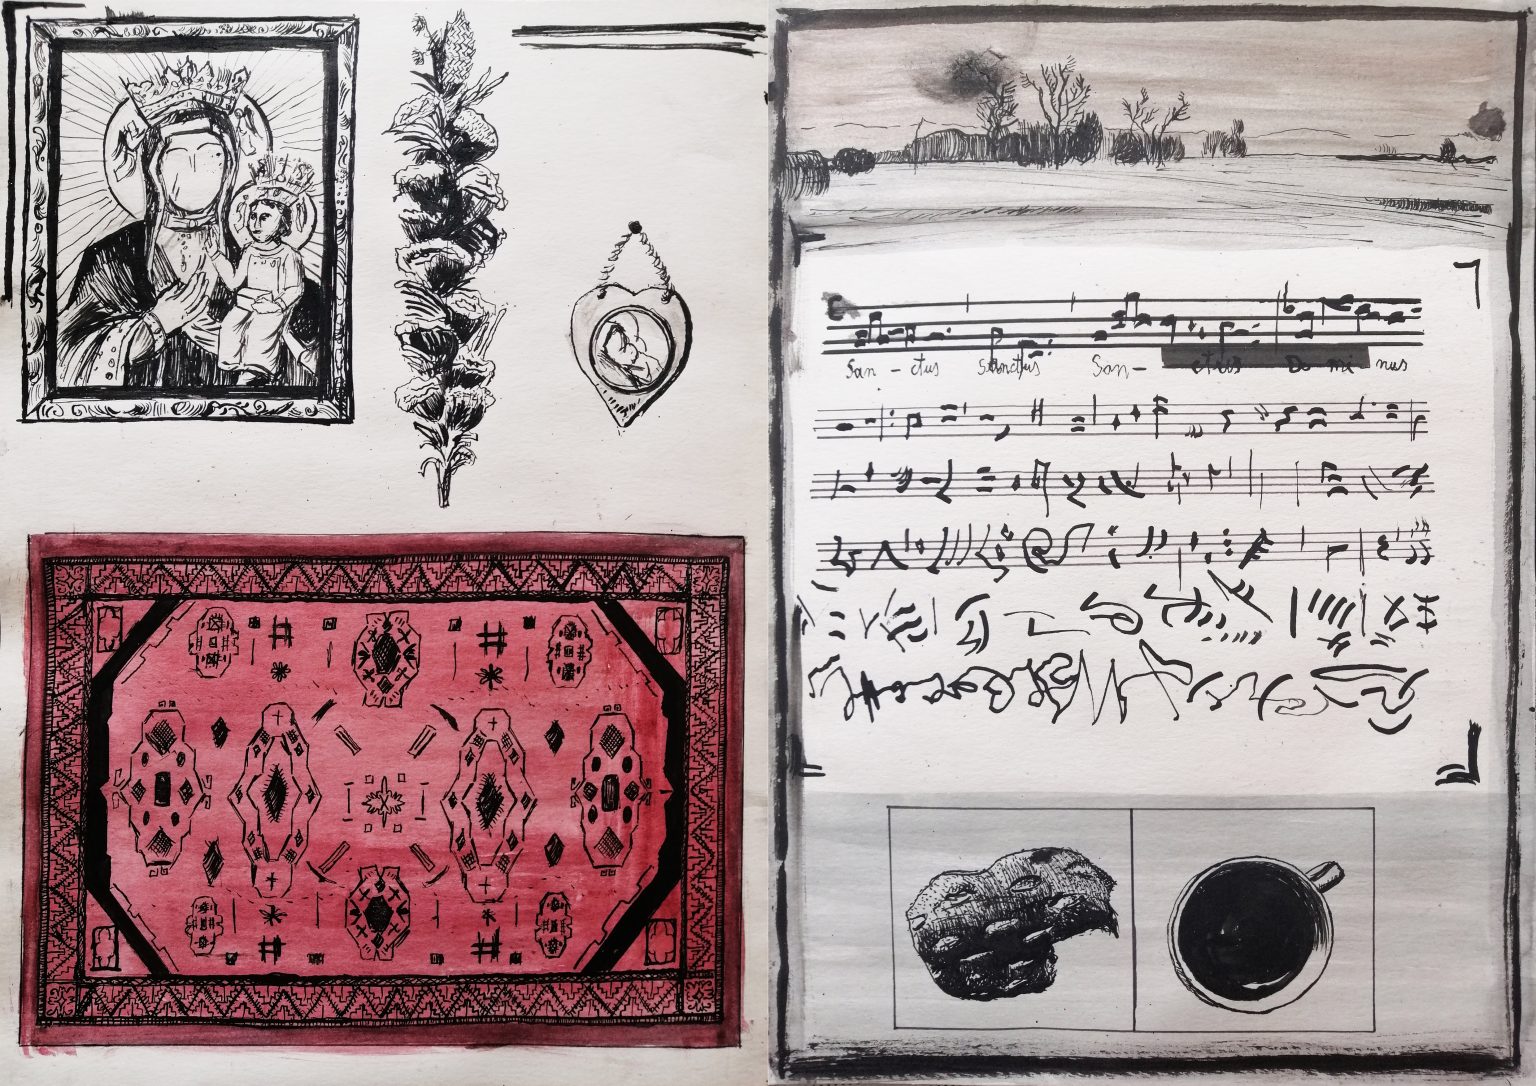 San - ctus Sanctus San - ctus Do mi nus